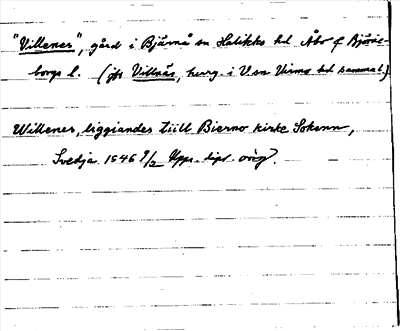 "Villenes", gård i Bjärnå sn Halikko hd Åbo o Björne-
borgs l. (jfr Villnäs, herrg. i V.sn Virmo hd samma l.)
Willenes, liggiandes tiill Bierno kirke Sokenn,
Svedja 1546 9/2 Upps. dipl. orig.